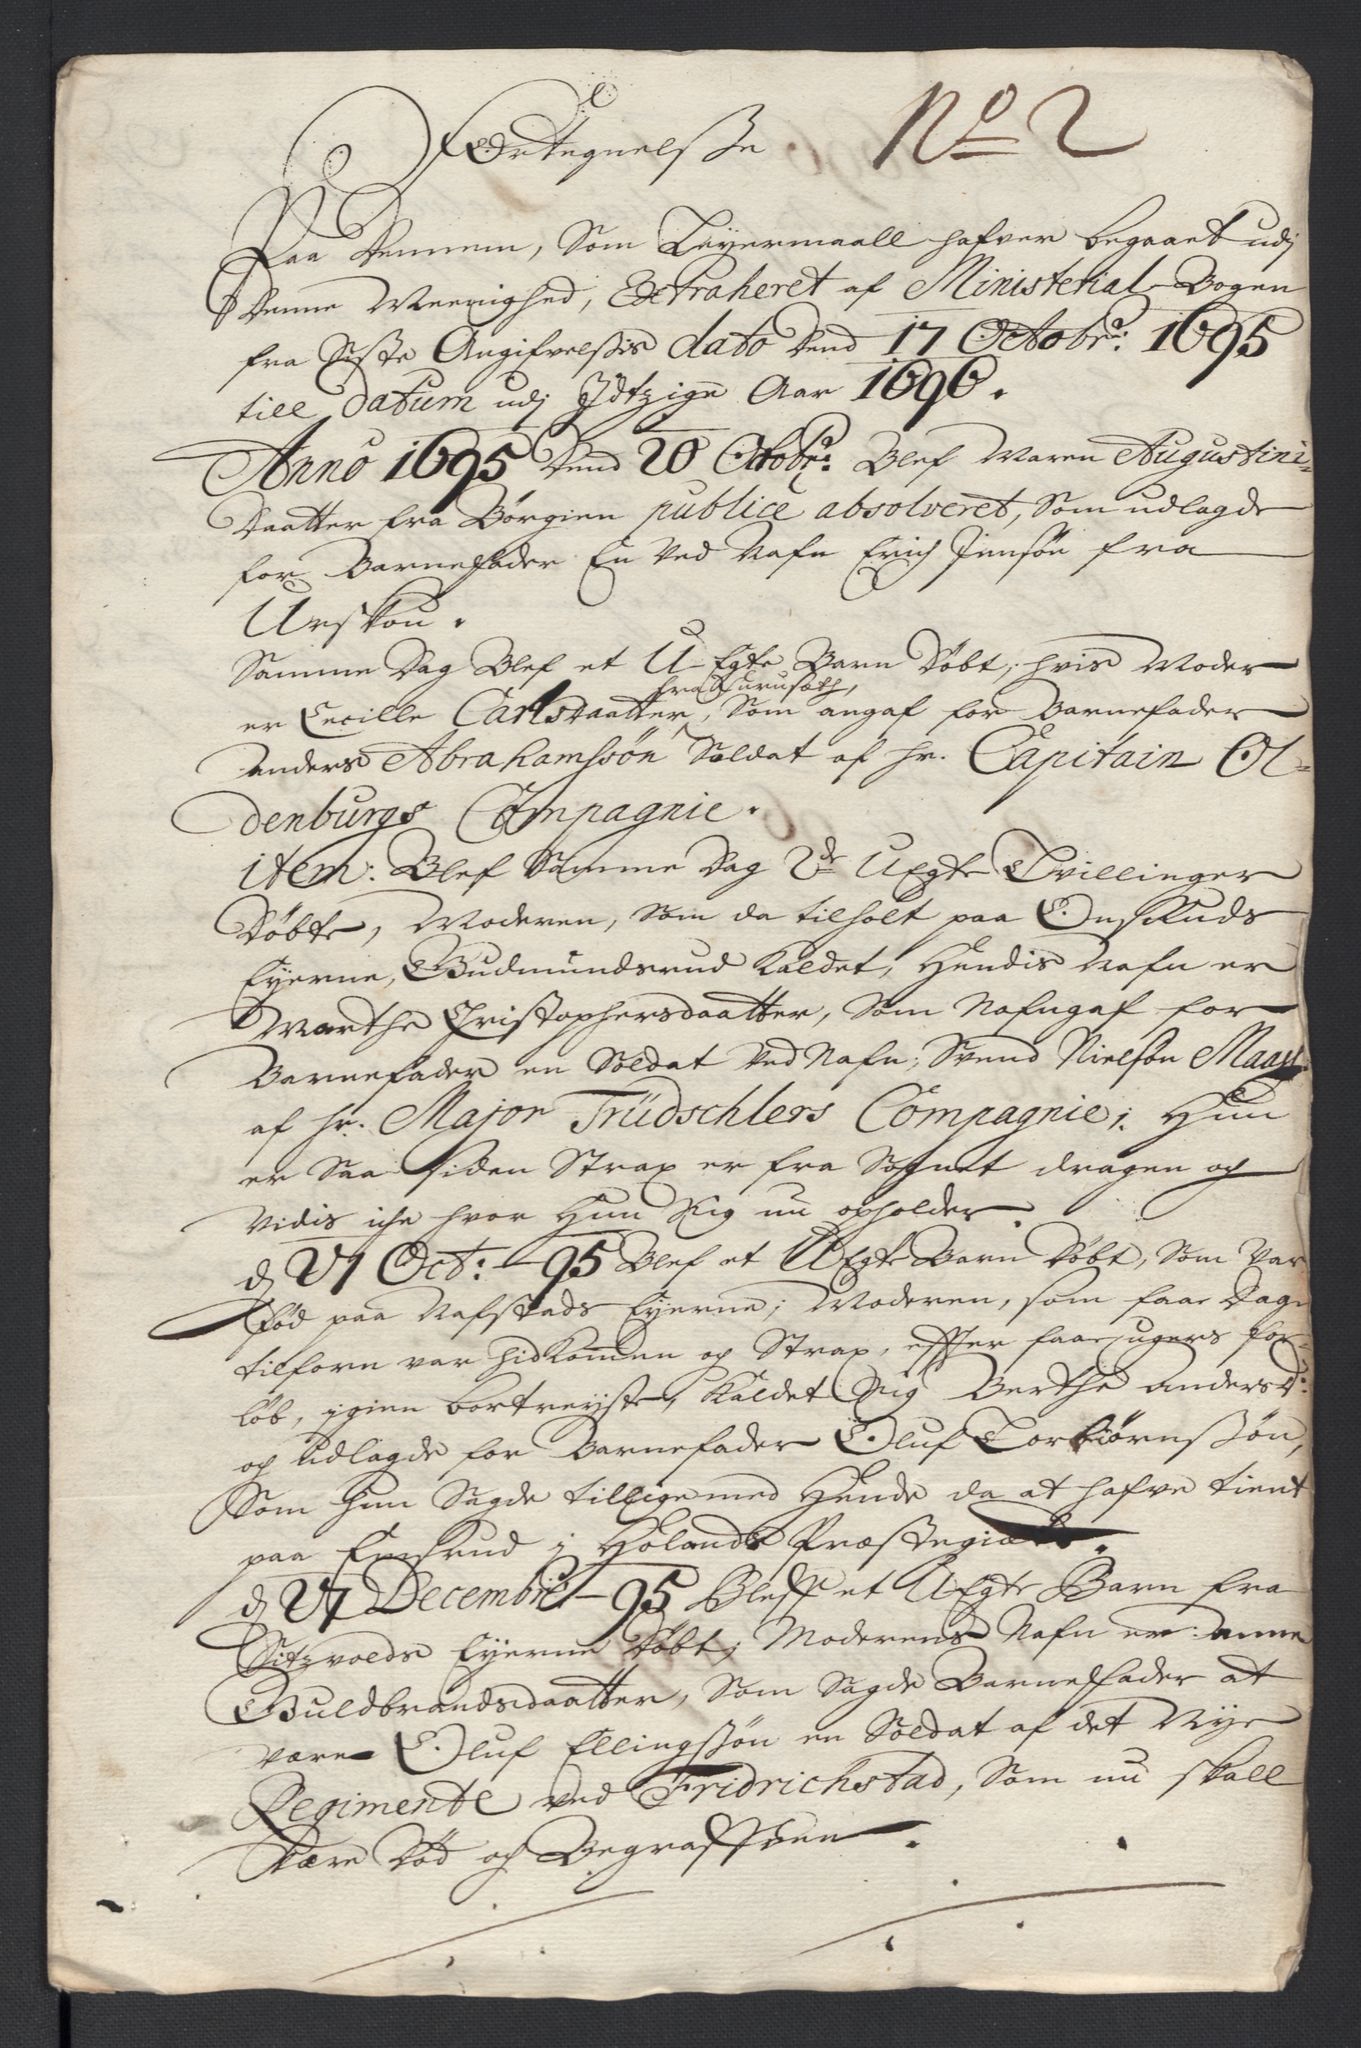 Fortegnelsse No 2
Paa Dennem, Som Leyermaall hafver begaaet udj
Denne Meenighed, Extraheret af Ministerial-Bogen
fra Siste Angifvelsis dato Dend 17 Octobr: 1695
till datum udj Jdtzige Aar 1696.
Anno 1695 Dend 20 Octobr: Blef Maren Augustini-
Daatter fra Børgien publice absolveret, Som udlagde
for Barnefader En Ved Nafn Erich Jensøn fra
Urskou.
Samme Dag Blef et U-Egte Barn Døbt, hvis Moder
er Cecille Carlsdaatter, Som angaf for Barnefader
Anders Abrahamsøn Soldat af hr. Capitain Ol-
denburgs Compagnie.
item: Blef Samme Dag 2de UEgte Tvillinger
Døbte, Moderen, Som da tilholt paa Onskuds
Eyerne, Gudmundsrud Kaldet, Hendis Nafn er
Marthe Christophersdaatter, Som Nafngaf for
Barnefader en Soldat Ved Nafn, Svend Nielsøn
af hr. Major Trüdschlers Compagnie; Hun
er Saa siden Strax er fra Sognet dragen og
Vidis iche hvor Hun Sig nu opholder.
d 27 Oct: -95 Blef et UEgte Barn Døbt, Som Var
fød paa Nafstads Eyerne; Moderen, som faae Dage
tilforn var hidkommen og Strax, effter faae ugers for-
løb, igien bortreyste, Kaldet Sig Berthe Anders D:
og Udlagde for Barnefader Oluf Torbiørnssøn,
Som hun Sagde tillige med Hende da at hafve tient
paa i Hølands Præstegield.
d 27 Decembr -95 Bleff et UEgte Barn fra
Sitzvolds Eyerne Døbt; Moderens Nafn er Anne
Guldbrandsdaatter, Som Sagde Barnefader at
være Oluf Ellingssøn en Soldat af det Nye
Regimente ved Fridrichstad, Som nu skall
Være Død og Begraffven.